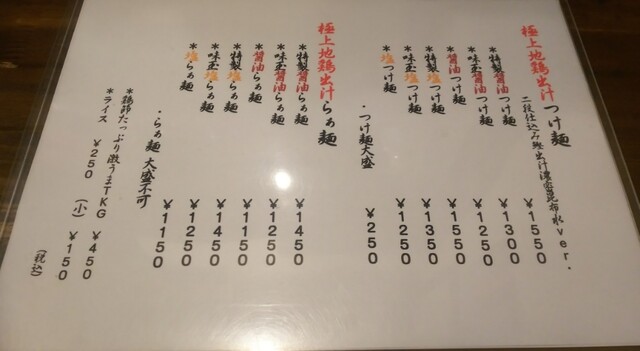 極上地鶏出汁つけ麺
二段仕込み鰹出汁濃密昆布水ver.
*特製醤油つけ麺 ¥1550
*味玉醤油つけ麺 ¥1300
*醤油つけ麺 ¥1250
*特製塩つけ麺 ¥1550
*味玉塩つけ麺 ¥1350
*塩つけ麺 ¥1250
・つけ麺大盛 ¥250
極上地鶏出汁らぁ麺
*特製醤油らぁ麺 ¥1450
*味玉醤油らぁ麺 ¥1250
*醤油らぁ麺 ¥1150
*特製塩らぁ麺 ¥1450
*味玉塩らぁ麺 ¥1250
*塩らぁ麺 ¥1150
・らぁ麺 大盛不可
*鶏節たっぷり激うまTKG ¥450
*ライス ¥250 (小) ¥150
(税込)